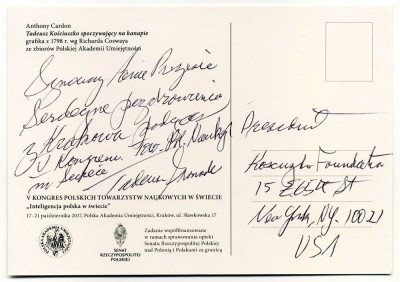 Anthony Cardon
Tadeusz Kościuszko spoczywający na kanapie
grafika z 1798 r. wg Richarda Coswaya
ze zbiorów Polskiej Akademii Umiejętności
Szanowny Panie Prezesie
Serdeczne pozdrowienia
z Krakowa podczas
V Kongresu Tow. Pol. Naukych
w świecie
Tadeusz
President
Kosciuszko Foundation
15 E 65th St
New York, NY. 10021
USA
V KONGRES POLSKICH TOWARZYSTW NAUKOWYCH W ŚWIECIE
„Inteligencja polska w świecie”
17–21 października 2017, Polska Akademia Umiejętności, Kraków, ul. Sławkowska 17
POLSKA AKADEMIA UMIEJĘTNOŚCI
SENAT
RZECZYPOSPOLITEJ
POLSKIEJ
Zadanie współfinansowane
w ramach sprawowania opieki
Senatu Rzeczypospolitej Polskiej
nad Polonią i Polakami za granicą